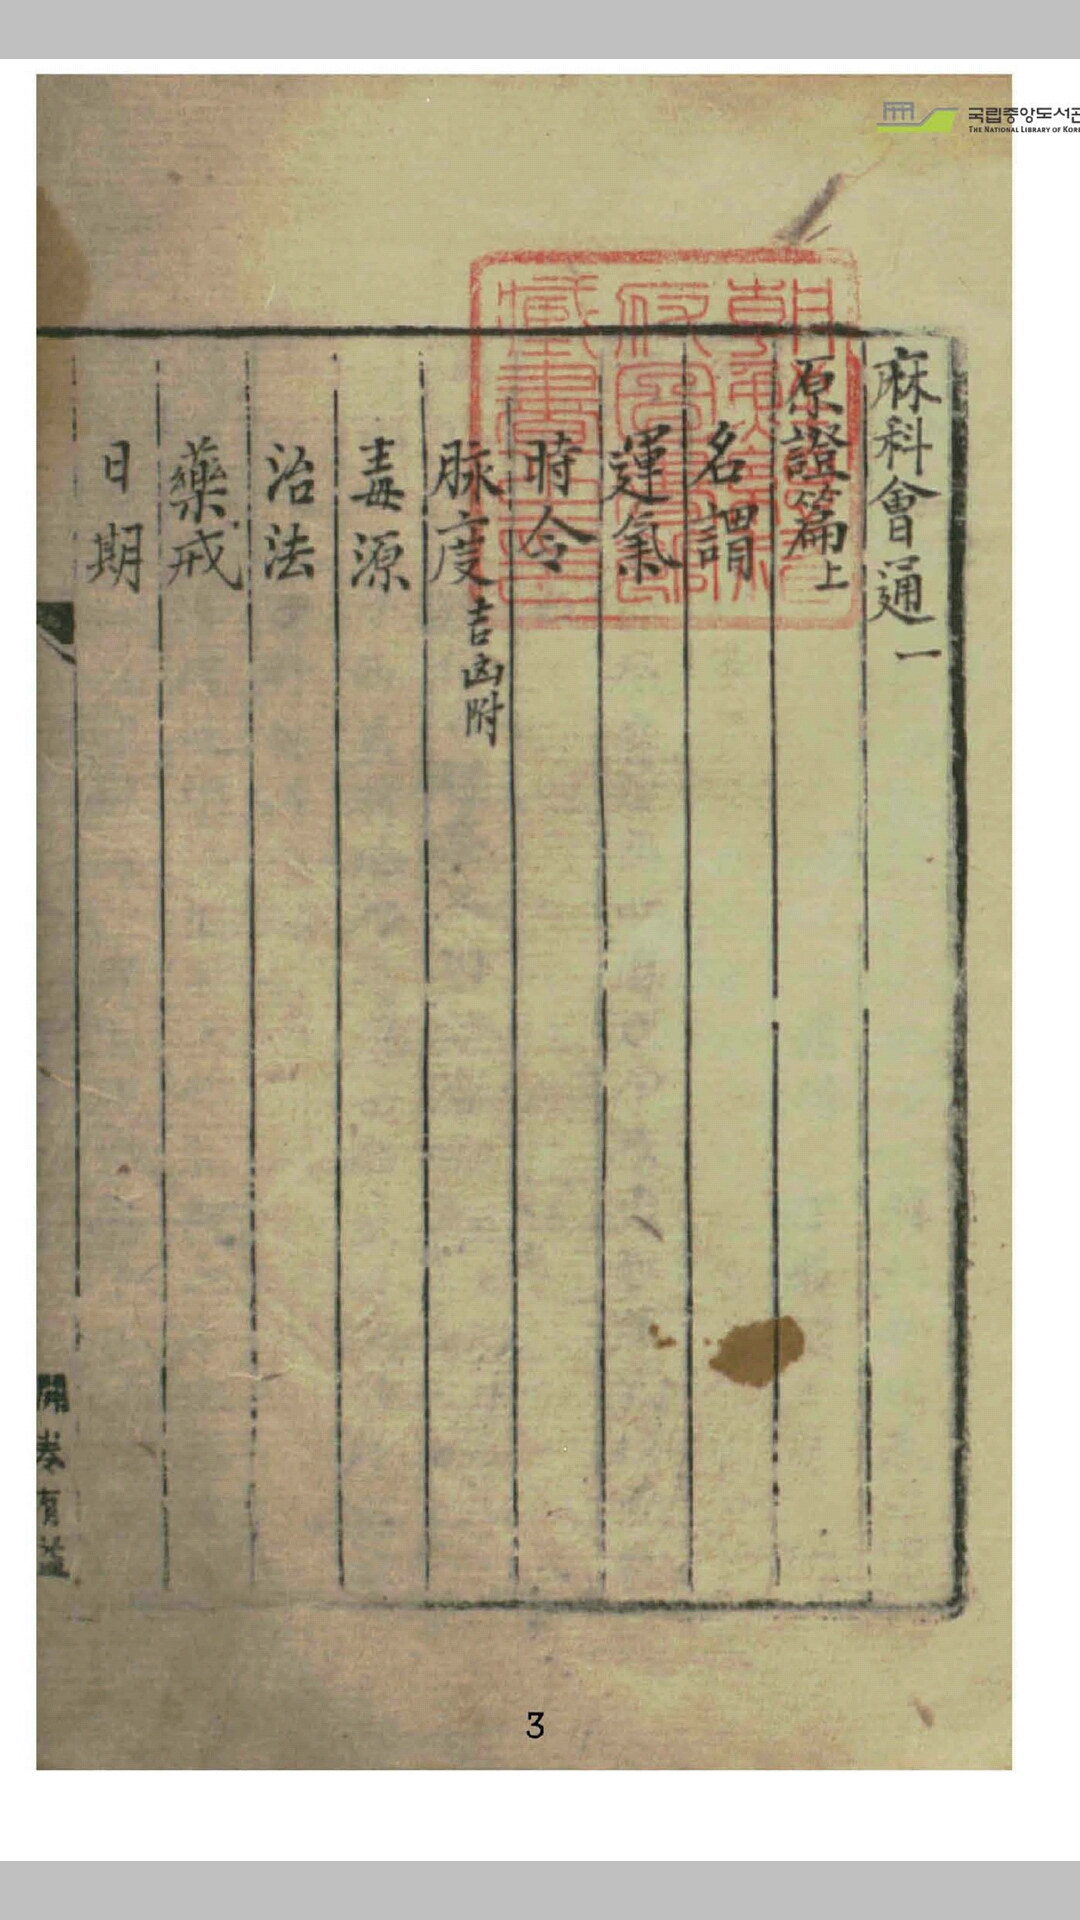 국립중앙도서관
THE NATIONAL LIBRARY OF KOR
麻科會通一
原證篇上
名謂
運氣
時令
脉度 吉凶附
毒源
治法
藥戒
日期
開卷有益
3